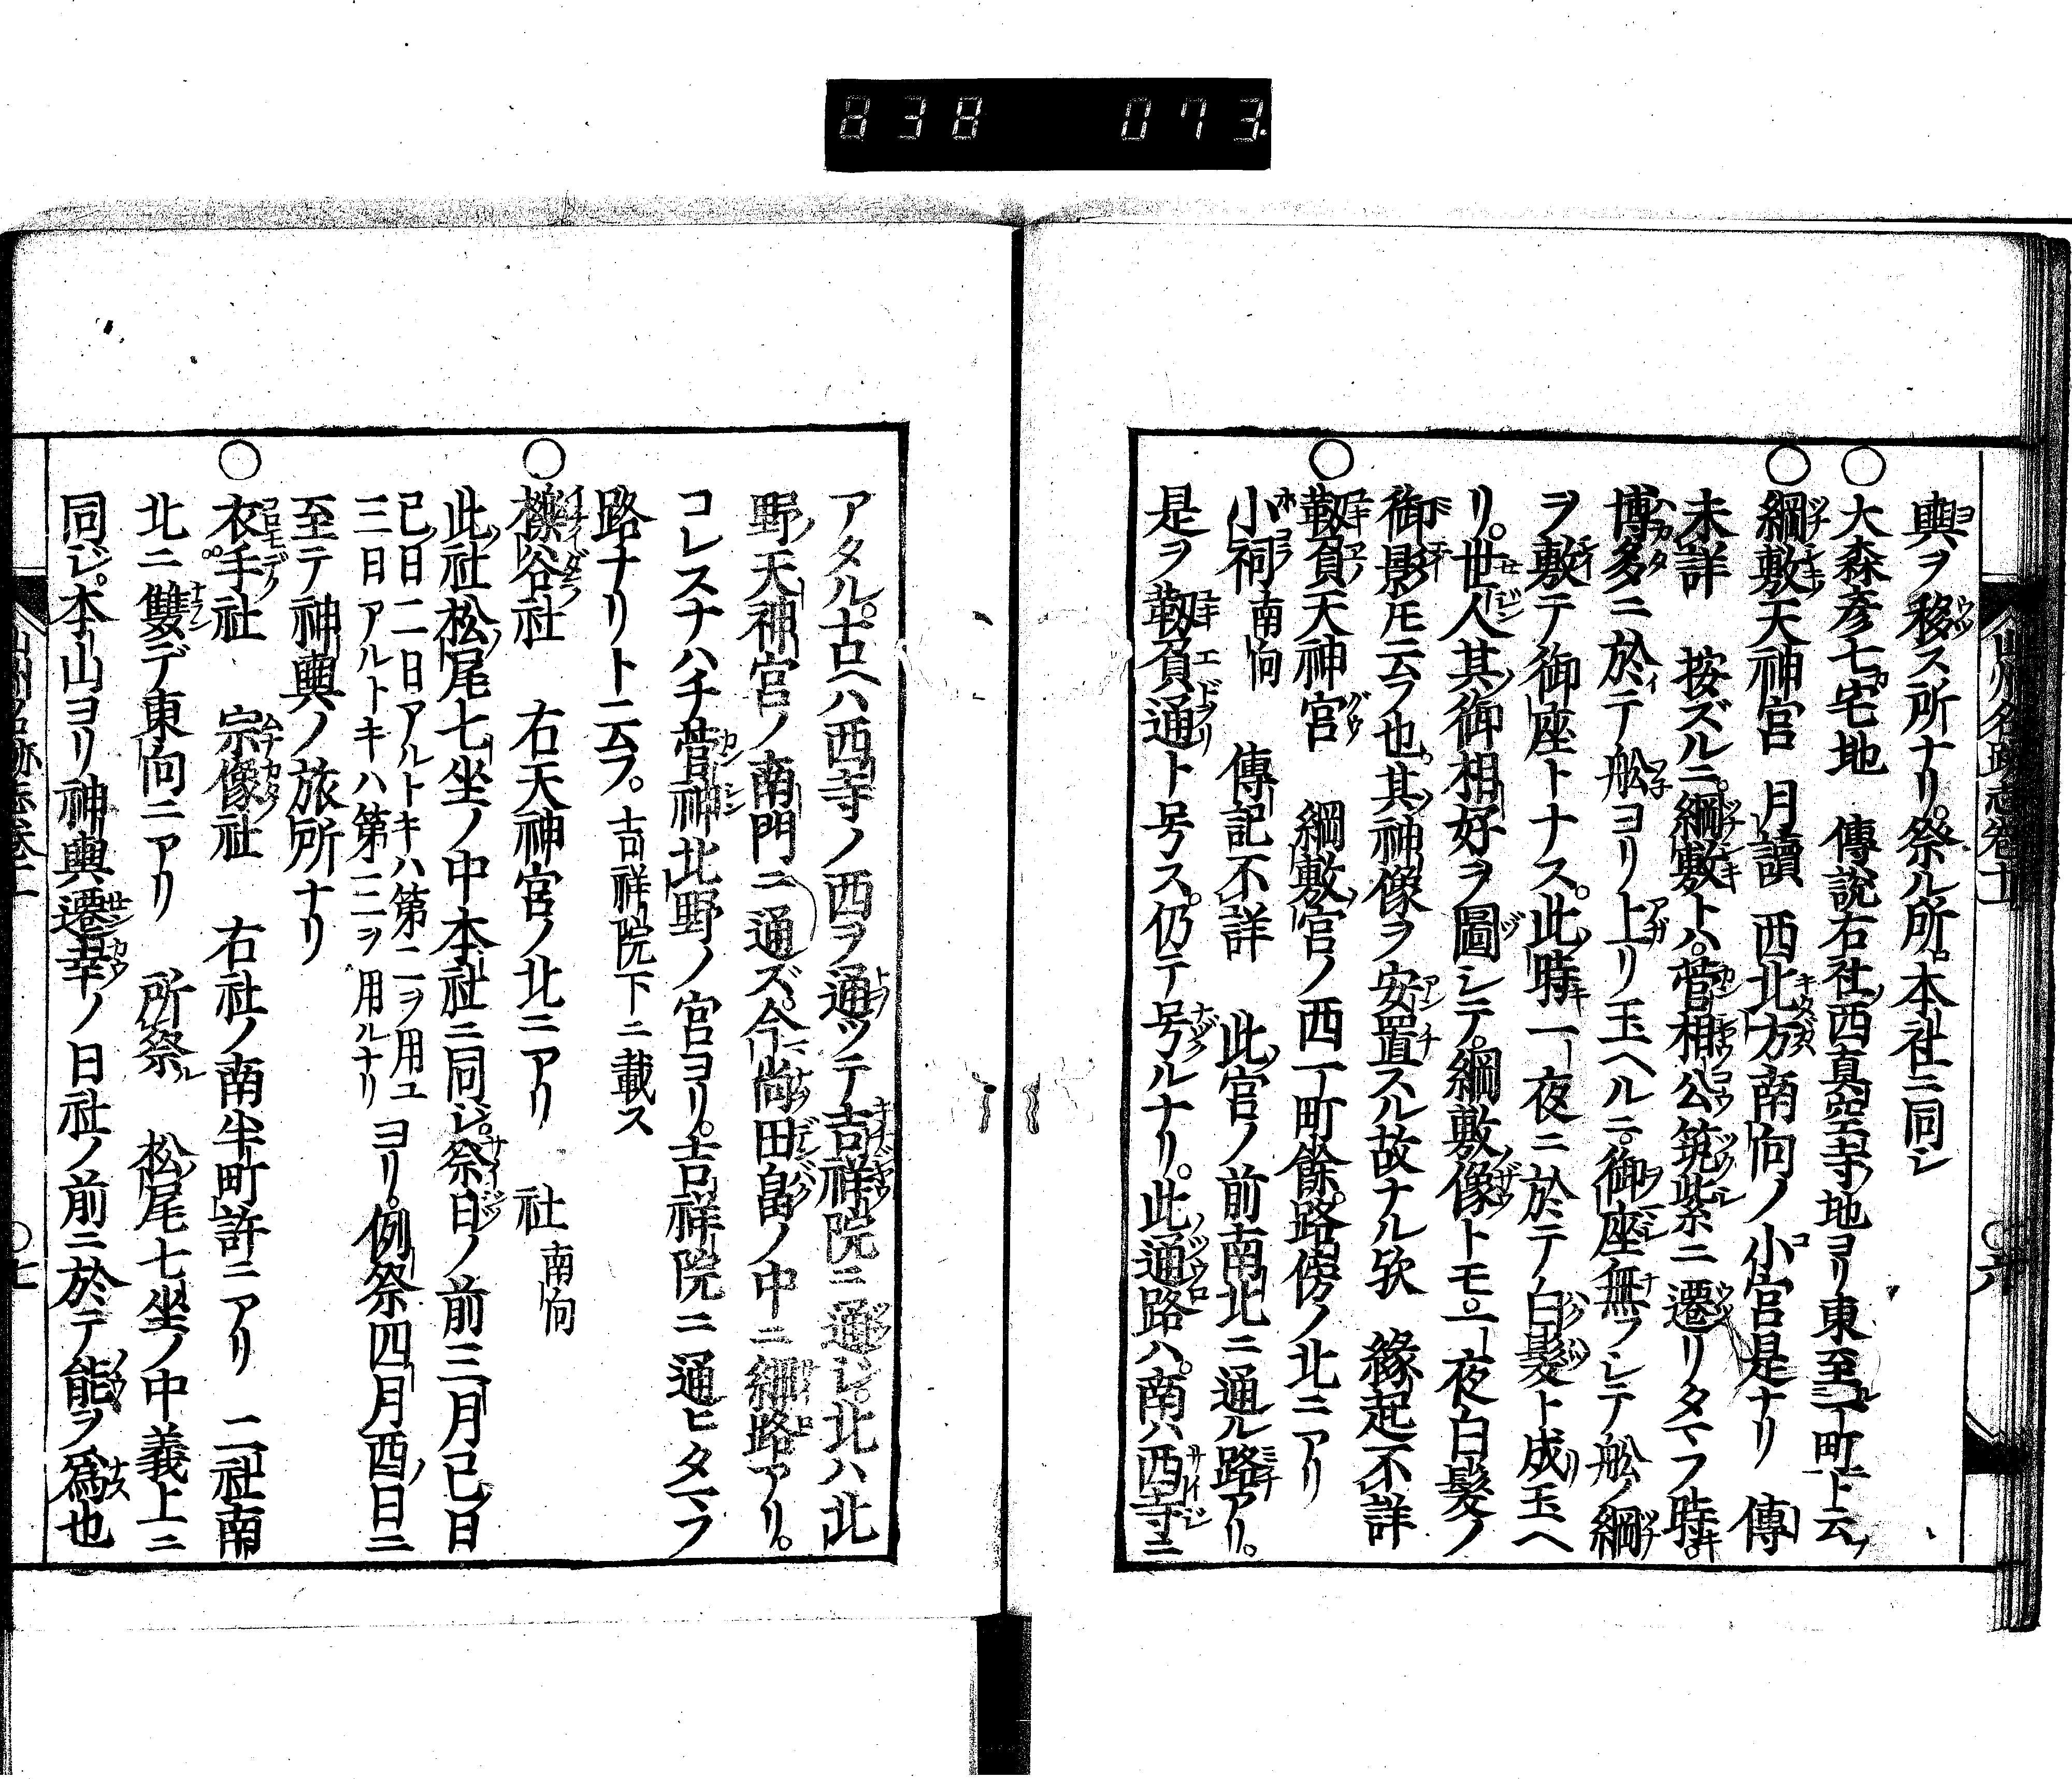 838 073
輿ヲ移ス所ナリ。祭ル所。本社ニ同シ
○大森彦七宅地 傳説右社ノ西真空寺ノ地ヨリ東至ル一町ト云フ
○綱敷天神宮 月讀 西北ノ方南向ノ小宮是ナリ 傳
未詳 按ズルニ。綱敷トハ。菅相公筑紫ニ遷リタマフ時。
博多ニ於テ舩ヨリ上リ玉ヘルニ。御座無フシテ舩ノ綱
ヲ敷テ御座トナス。此時一夜ニ於テ白髮ト成玉ヘ
リ。世人其御相好ヲ圖シテ。綱敷像トモ。一夜白髮ノ
御影トモ云フ也。其ノ神像ヲ安置スル故ナル欤 緣起不詳
○靱負天神宮 綱敷ノ宮ノ西一町餘。路傍ノ北ニアリ
小祠 南向 傳記不詳 此ノ宮ノ前南北ニ通ル路アリ。
是ヲ靱負通ト号ス。仍テ号ルナリ。此ノ通路ハ。南ハ西寺ニ
アタル。古ヘハ西寺ノ西ヲ通ツテ吉祥院ニ通レ。北ハ北
野ノ天神宮ノ南門ニ通ズ。今ニ尚田畠ノ中ニ細路アリ。
コレスナハチ菅神北野ノ宮ヨリ。吉祥院ニ通ヒタマフ
路ナリト云フ。吉祥院下ニ載ス
○櫟谷社 右天神宮ノ北ニアリ 社 南向
此ノ社松ノ尾七坐ノ中本社ニ同ジ。祭日ノ前三月已ノ日
已ノ日二日アルトキハ第二ヲ用ユ
三日アルトキハ第三ヲ用ルナリ ヨリ。例祭四月酉ノ日ニ
至テ神輿ノ旅所ナリ
○衣手社 宗像社 右社ノ南半町許ニアリ 二社南
北ニ雙デ東向ニアリ 所祭ル 松ノ尾七坐ノ中義上ニ
同ジ。本山ヨリ神輿遷幸ノ日社ノ前ニ於テ能ヲ爲也